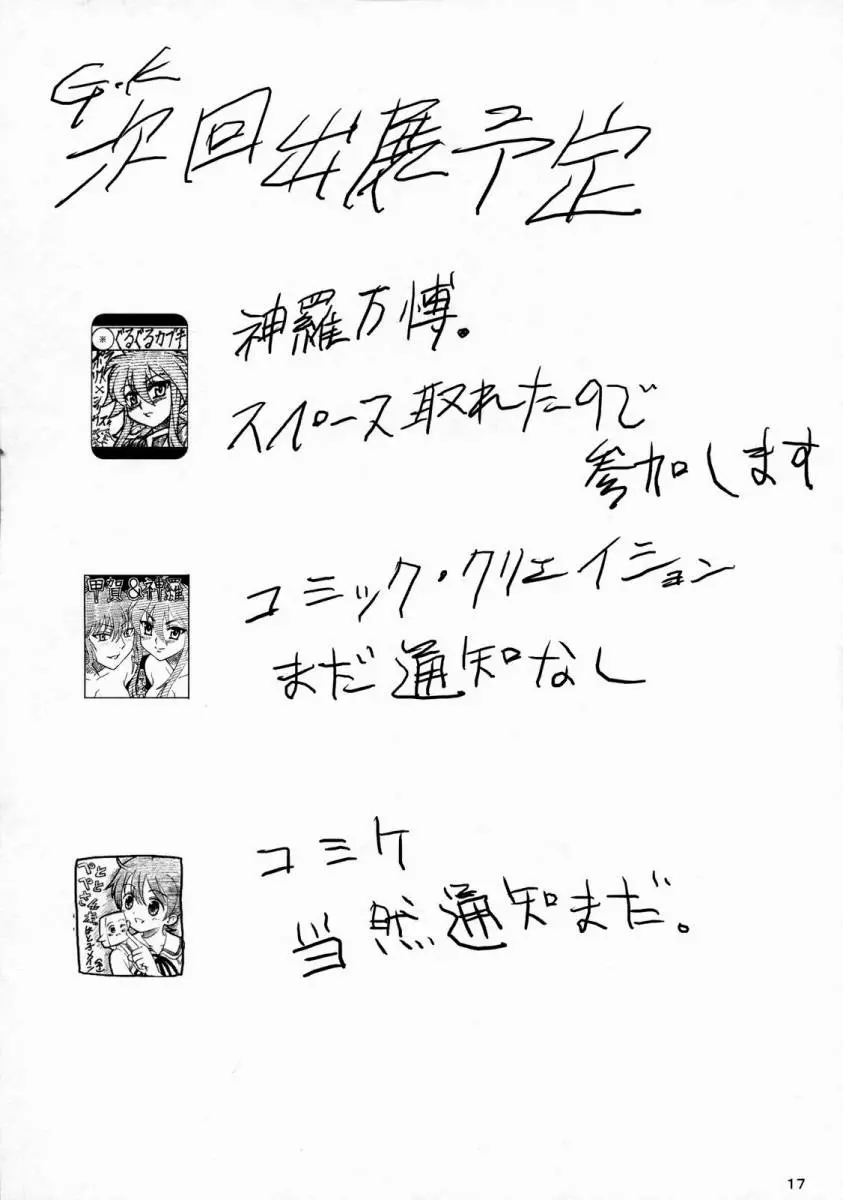 G・K
次回出展予定
神羅万博。
スペース取れたので
参加します
※ ぐるぐるカブキ
コミック・クリエイション
まだ通知なし
甲賀&神羅
コミケ
当然通知まだ。
17